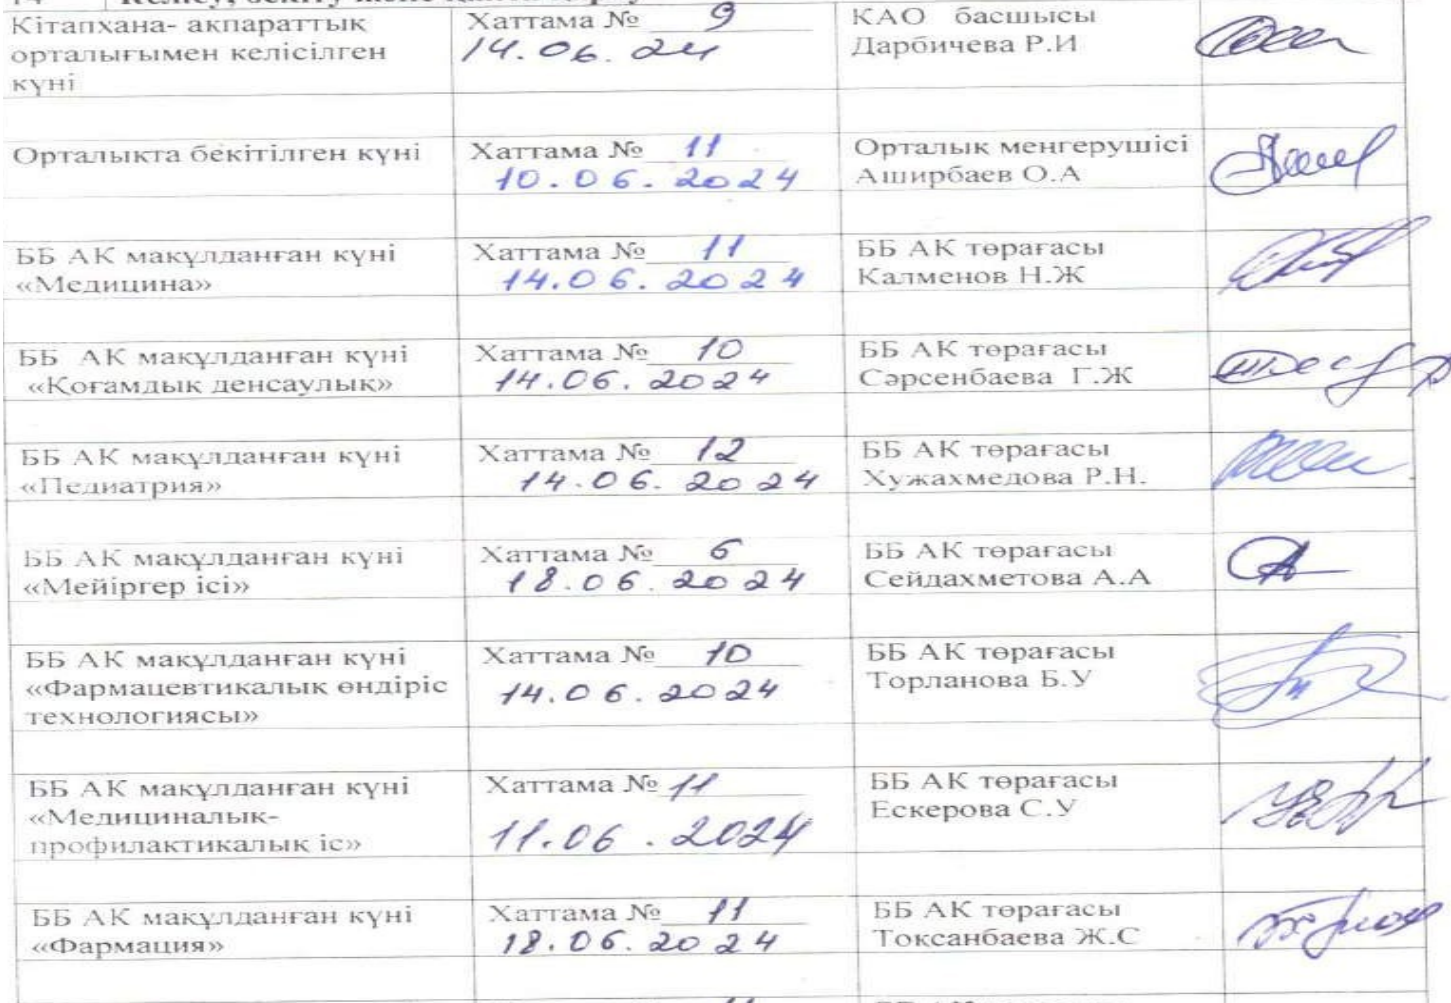 Кітапхана- ақпараттық
орталығымен келісілген
күні
Хаттама № 9
14.06.24
КАО басшысы
Дарбичева Р.И
Орталыкта бекітілген күні
Хаттама № 11
10.06.2024
Орталық меңгерушісі
Аширбаев О.А
ББ АК мақұлданған күні
«Медицина»
Хаттама № 11
14.06.2024
ББ АК төрағасы
Калменов Н.Ж
ББ АК мақұлданған күні
«Қоғамдық денсаулық»
Хаттама № 10
14.06.2024
ББ АК төрағасы
Сәрсенбаева Г.Ж
ББ АК мақұлданған күні
«Педиатрия»
Хаттама № 12
14.06.2024
ББ АК төрағасы
Хужахмедова Р.Н.
ББ АК мақұлданған күні
«Мейіргер ісі»
Хаттама № 6
18.06.2024
ББ АК төрағасы
Сейдахметова А.А
ББ АК мақұлданған күні
«Фармацевтикалық өндіріс
технологиясы»
Хаттама № 10
14.06.2024
ББ АК төрағасы
Торланова Б.У
ББ АК мақұлданған күні
«Медициналық-
профилактикалық іс»
Хаттама № 11
11.06.2024
ББ АК төрағасы
Ескерова С.У
ББ АК мақұлданған күні
«Фармация»
Хаттама № 11
18.06.2024
ББ АК төрағасы
Токсанбаева Ж.С